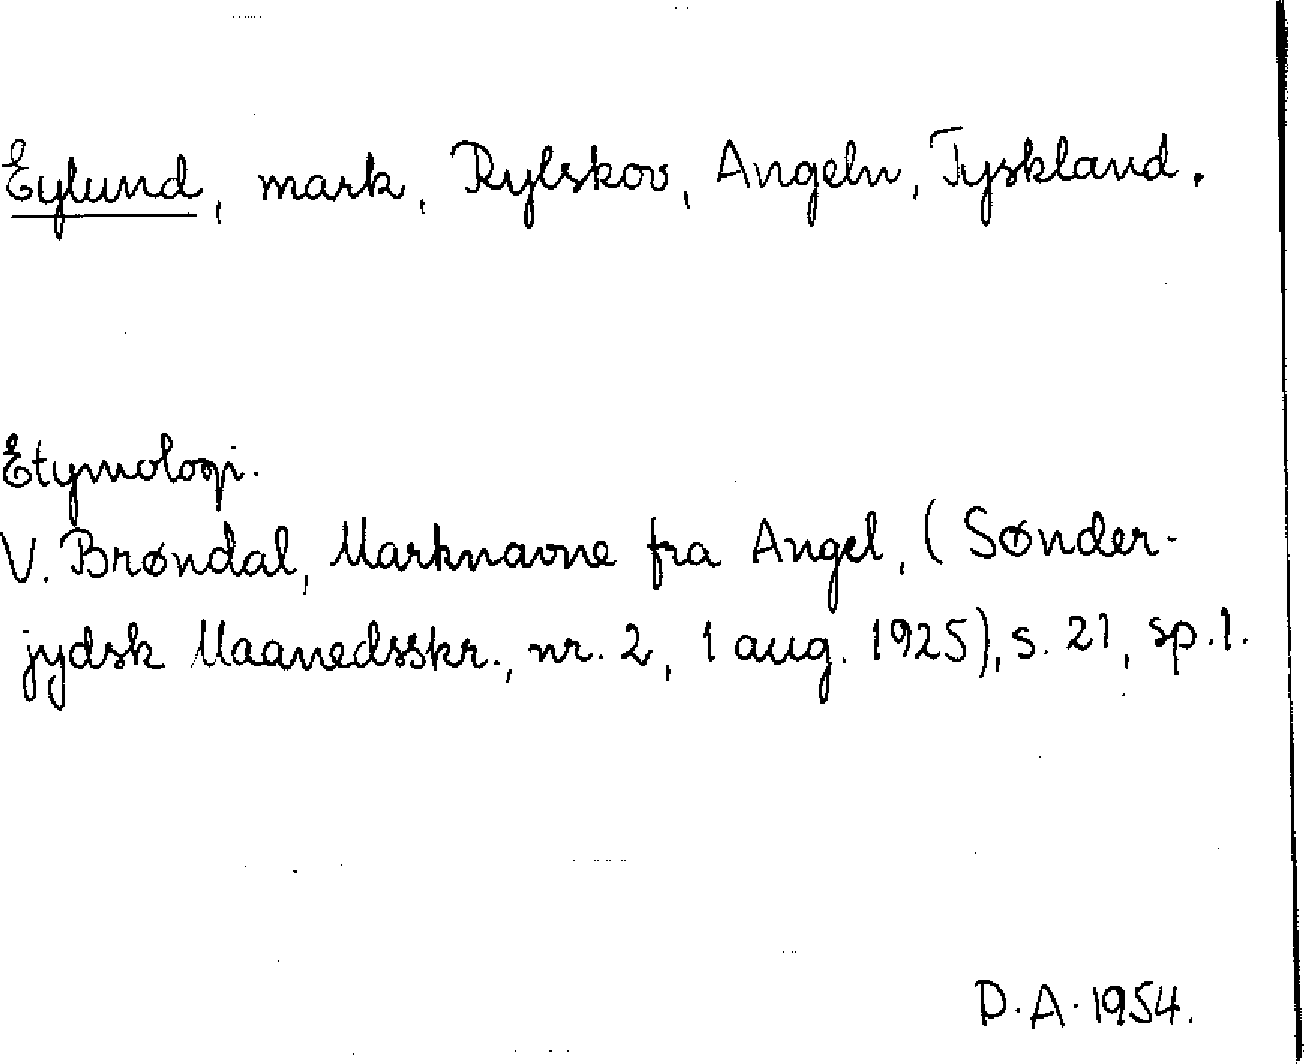 Eylund, mark, Rylskov, Angeln, Tyskland.
Etymologi.
V. Brøndal, Marknavne fra Angel, (Sønder-
jydsk Maanedsskr., nr. 2, 1 aug. 1925), s. 21, sp. 1.
D. A. 1954.